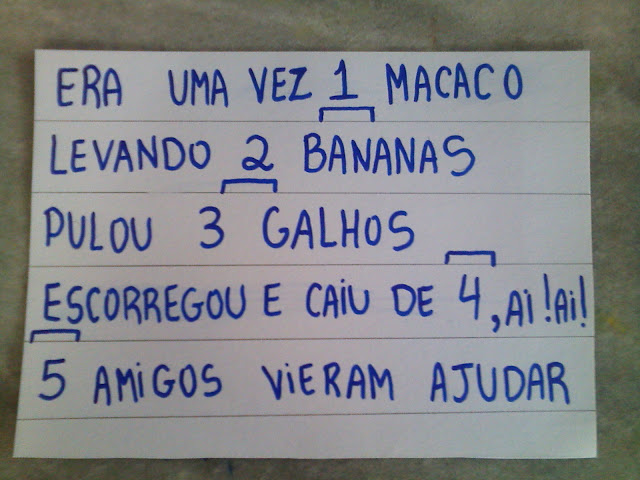 ERA UMA VEZ 1 MACACO
LEVANDO 2 BANANAS
PULOU 3 GALHOS
ESCORREGOU E CAiU DE 4, Ai! Ai!
5 AMiGOS ViERAM AJUDAR